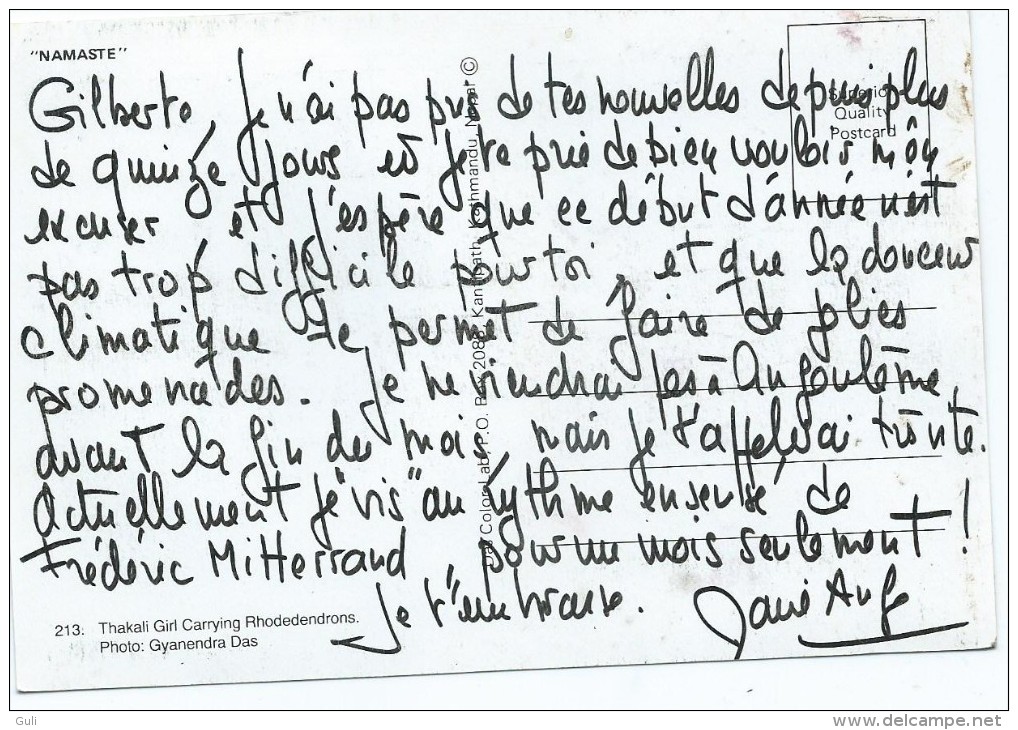 "NAMASTE"
Gilberte, Je n'ai pas pris de tes nouvelles depuis plus
de quinze jours et je te prie de bien vouloir m'en
excuser et j'espère que ce début d'année n'est
pas trop difficile pour toi, et que la douceur
climatique te permet de faire de jolies
promenades. Je ne viendrai pas à Angoulême
avant la fin du mois, mais je t'appellerai très vite.
Actuellement je "vis" au rythme de
Frédéric Mitterrand pour un mois seulement !
Je t'embrasse.
213. Thakali Girl Carrying Rhodedendrons.
Photo: Gyanendra Das
Das Color Lab, P.O. Box Kantipath, Kathmandu, Nepal ©
Superior
Quality
Postcard
Guli
www.delcampe.net